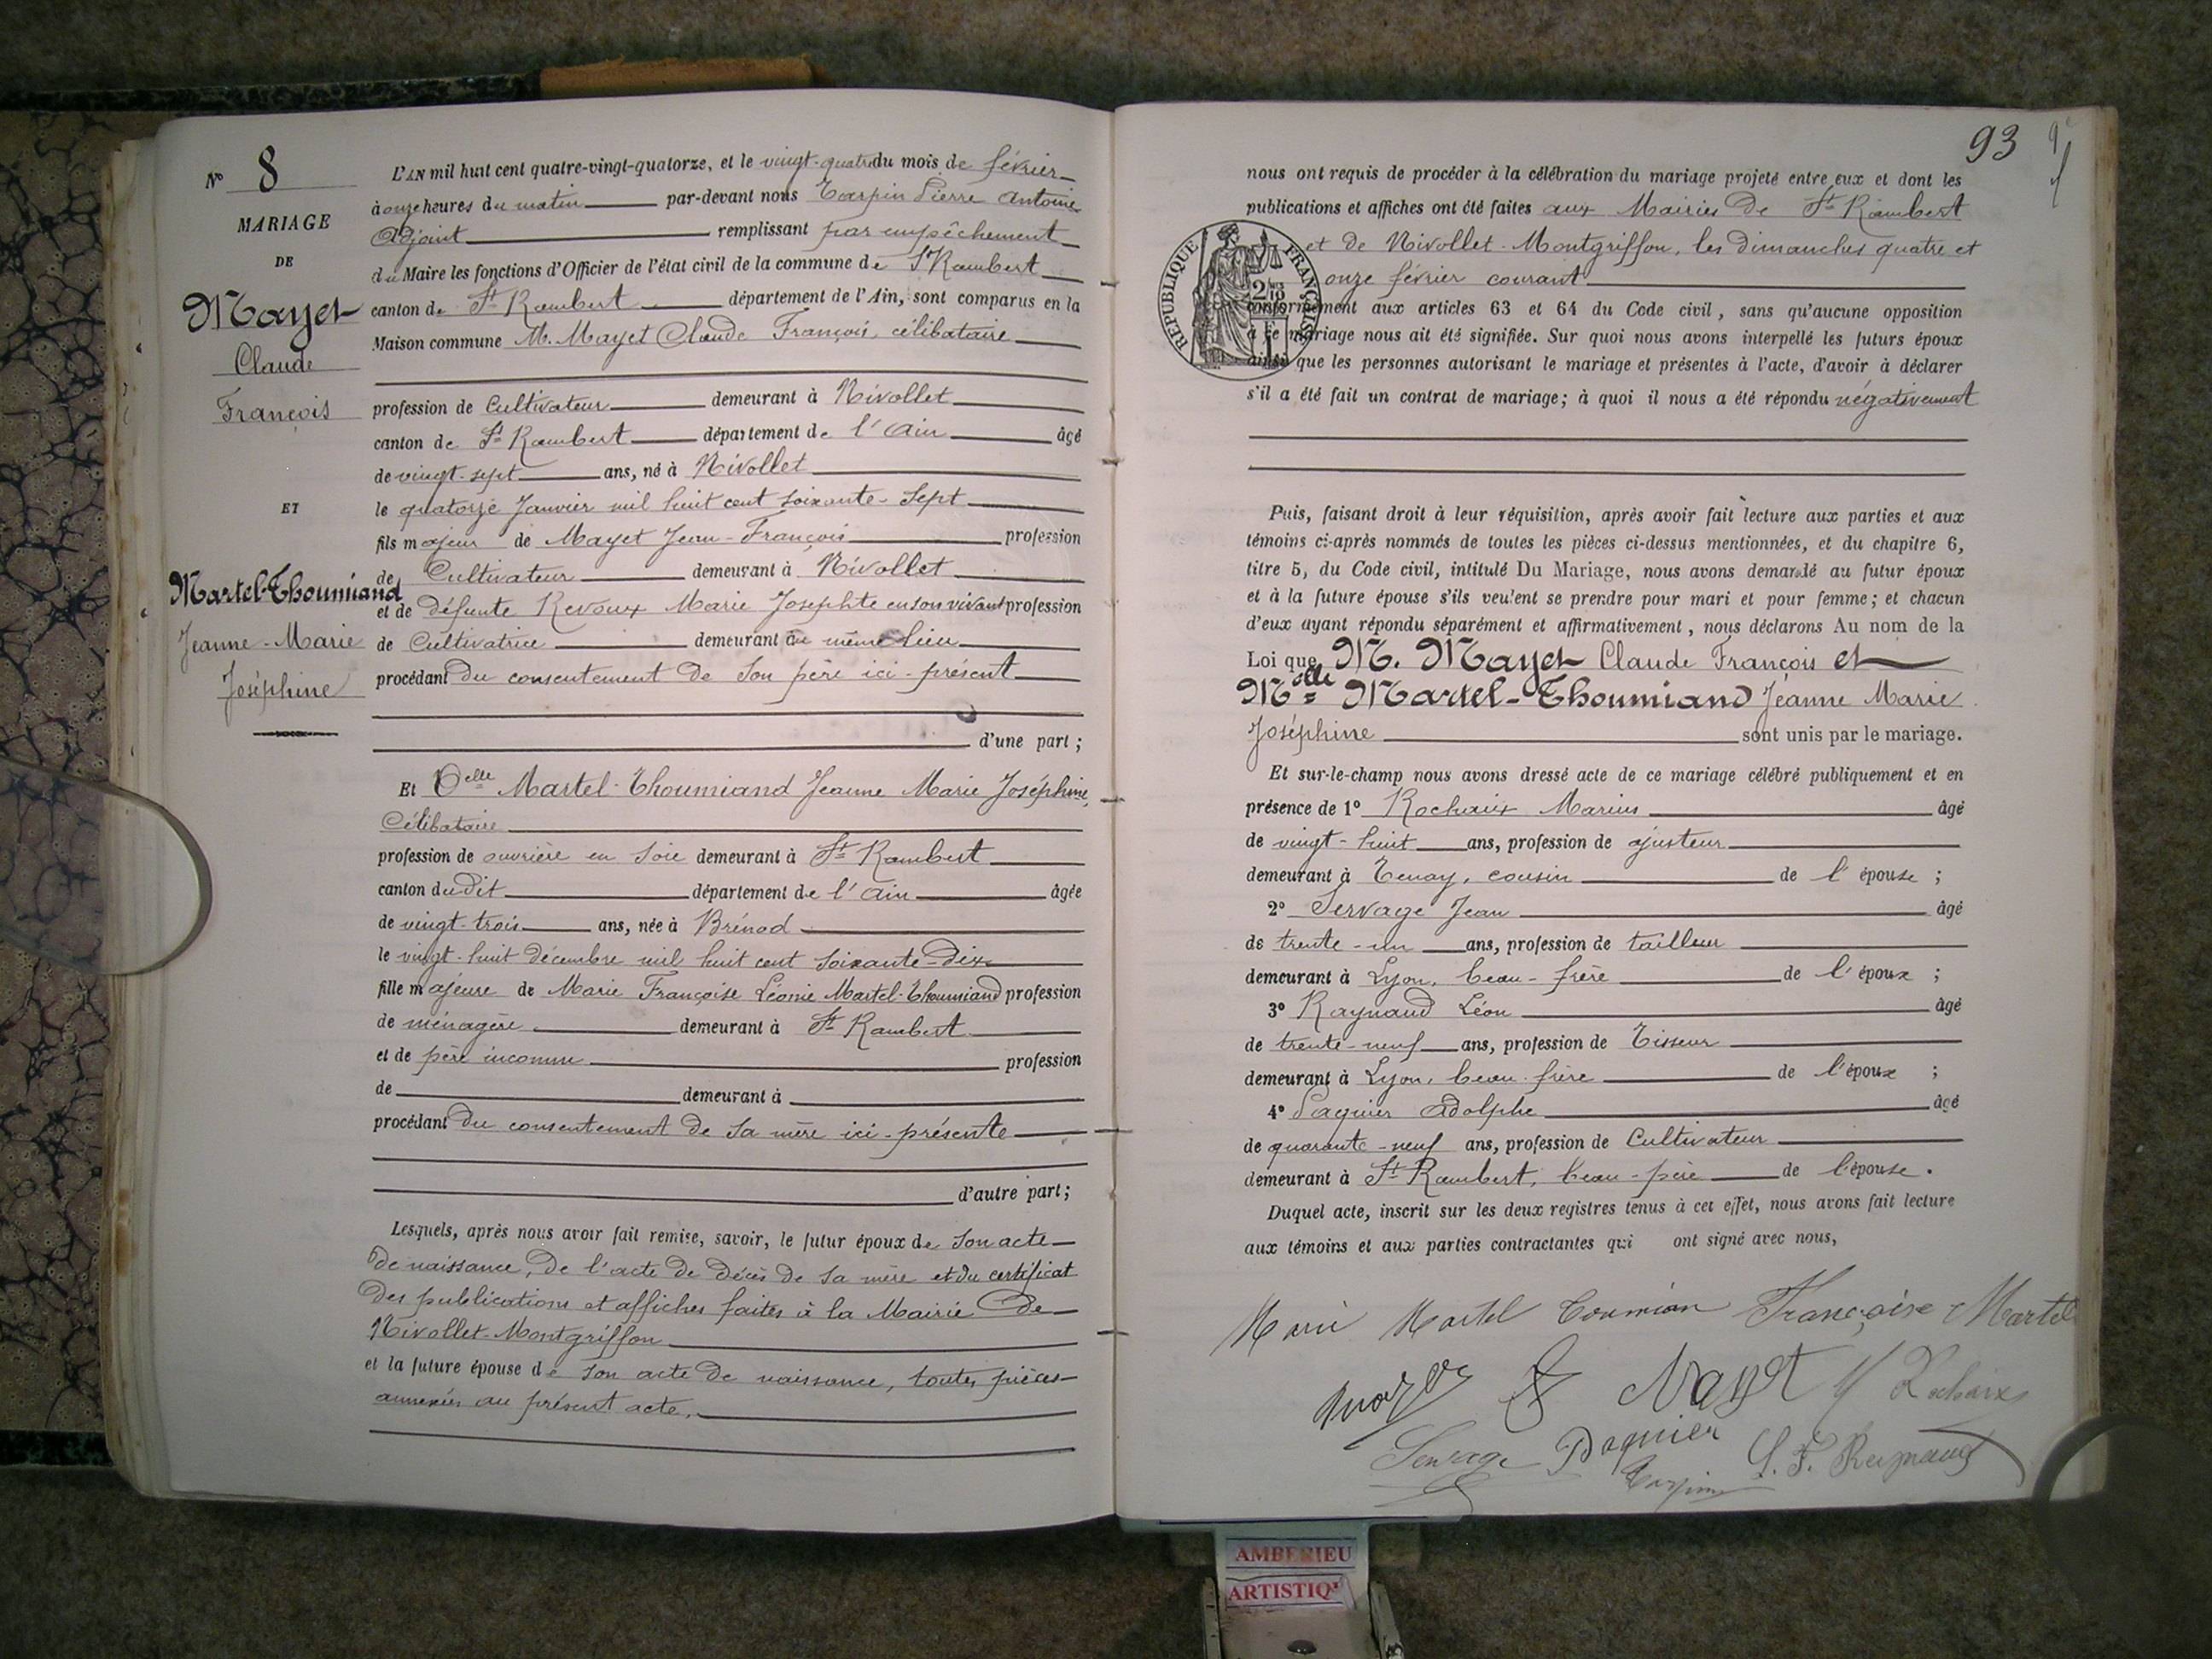 N° 8
MARIAGE
DE
Mayet
Claude
François
ET
Martel-Thoumiand
Jeanne-Marie
Joséphine
L'AN mil huit cent quatre-vingt-quatorze, et le vingt-quatre du mois de février
à onze heures du matin par-devant nous Tarpin Pierre Antoine
Adjoint remplissant par empêchement
du Maire les fonctions d'Officier de l'état civil de la commune de St Rambert
canton de St Rambert département de l'Ain, sont comparus en la
Maison commune M. Mayet Claude François, célibataire
profession de Cultivateur demeurant à Nivollet
canton de St Rambert département de l'Ain âgé
de vingt-sept ans, né à Nivollet
le quatorze Janvier mil huit cent soixante-sept
fils majeur de Mayet Jean-François profession
de Cultivateur demeurant à Nivollet
et de défunte Revoux Marie Josephte en son vivant profession
de Cultivatrice demeurant au même lieu
procédant du consentement de son père ici-présent
d'une part ;
Et Delle Martel-Thoumiand Jeanne Marie Joséphine,
Célibataire
profession de ouvrière en soie demeurant à St Rambert
canton du dit département de l'Ain âgée
de vingt-trois ans, née à Brénod
le vingt-huit décembre mil huit cent soixante-dix
fille majeure de Marie Françoise Léonie Martel-Thoumiand profession
de ménagère demeurant à St Rambert
et de père inconnu profession
de demeurant à
procédant du consentement de sa mère ici-présente
d'autre part ;
Lesquels, après nous avoir fait remise, savoir, le futur époux de son acte
de naissance, de l'acte de décès de sa mère et du certificat
des publications et affiches faites à la Mairie de
Nivollet-Montgriffon
et la future épouse de son acte de naissance, toutes pièces
annexées au présent acte.
93
nous ont requis de procéder à la célébration du mariage projeté entre eux et dont les
publications et affiches ont été faites aux Mairies de St Rambert
et de Nivollet-Montgriffon, les dimanches quatre et
onze février courant
RÉPUBLIQUE FRANÇAISE
conformément aux articles 63 et 64 du Code civil, sans qu'aucune opposition
à ce mariage nous ait été signifiée. Sur quoi nous avons interpellé les futurs époux
ainsi que les personnes autorisant le mariage et présentes à l'acte, d'avoir à déclarer
s'il a été fait un contrat de mariage ; à quoi il nous a été répondu négativement
Puis, faisant droit à leur réquisition, après avoir fait lecture aux parties et aux
témoins ci-après nommés de toutes les pièces ci-dessus mentionnées, et du chapitre 6,
titre 5, du Code civil, intitulé Du Mariage, nous avons demandé au futur époux
et à la future épouse s'ils veulent se prendre pour mari et pour femme ; et chacun
d'eux ayant répondu séparément et affirmativement, nous déclarons Au nom de la
Loi que M. Mayet Claude François et
Melle Martel-Thoumiand Jeanne Marie
Joséphine sont unis par le mariage.
Et sur-le-champ nous avons dressé acte de ce mariage célébré publiquement et en
présence de 1° Rochaix Marius âgé
de vingt-huit ans, profession de ajusteur
demeurant à Tenay, cousin de l'épouse ;
2° Servage Jean âgé
de trente-un ans, profession de tailleur
demeurant à Lyon, beau-frère de l'époux ;
3° Raynaud Léon âgé
de trente-neuf ans, profession de Tisseur
demeurant à Lyon, beau-frère de l'époux ;
4° Paquier Adolphe âgé
de quarante-neuf ans, profession de Cultivateur
demeurant à St Rambert, beau-père de l'épouse.
Duquel acte, inscrit sur les deux registres tenus à cet effet, nous avons fait lecture
aux témoins et aux parties contractantes qui ont signé avec nous,
Marie Martel Toumian Françoise Martel
Mayet M Rochaix
Servage Paquier L. F. Reynaud
Tarpin
AMBERIEU
ARTISTIQ